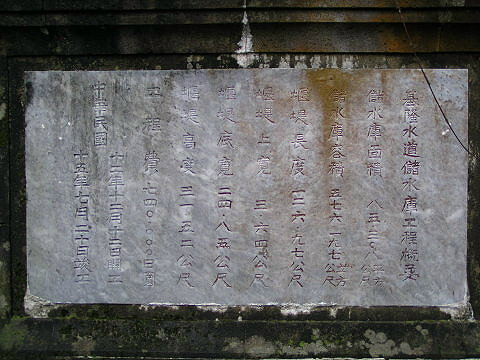 基隆水道儲水庫工程概要
儲水庫面積 八五三·八立方公尺
儲水庫容積 五七六一九七立方公尺
堰堤長度 一二六·九七公尺
堰堤上寬 三·六四公尺
堰堤底寬 二四·八五公尺
堰堤高度 三一·五二公尺
工程費 七四〇·〇〇〇
中華民國
十二年十二月十二日開工
十五年七月二十日竣工